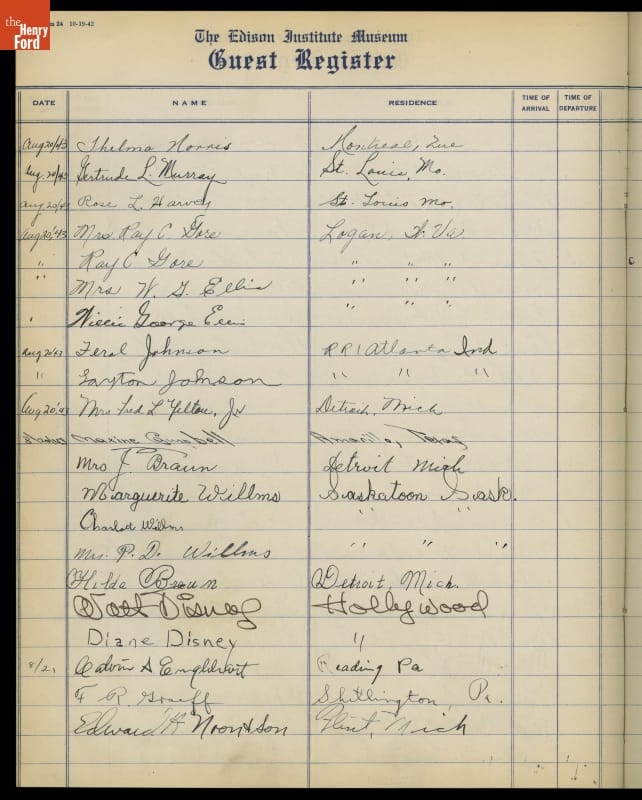 the
Henry
Ford
24 10-19-42
The Edison Institute Museum
Guest Register
DATE NAME RESIDENCE TIME OF ARRIVAL TIME OF DEPARTURE
Aug 20/43 Thelma Norris Montreal, Que
Aug. 20/43 Gertrude L. Murray St. Louis, Mo.
Aug 20/43 Rose L. Harvey St. Louis Mo.
Aug 20, '43 Mrs Ray C. Gore Logan, W. Va
" Ray C. Gore " " "
" Mrs W. G. Ellis " " "
" Willie George Ellis " " "
Aug 20 43 Feral Johnson RR1 Atlanta Ind
" Layton Johnson " " "
Aug 20, '43 Mrs Fred L Yelton, Jr Detroit, Mich
Maxine Campbell Amarillo, Texas
Mrs J. Braun Detroit Mich
Marguerite Willms Saskatoon Sask.
Charlott Willms " "
Mrs. P. D. Willms " " "
Hilda Braun Detroit, Mich.
Walt Disney Hollywood
Diane Disney "
8/21 Calvin A Englehart Reading Pa
F R Graeff Shillington, Pa.
Edward H Flint, Mich